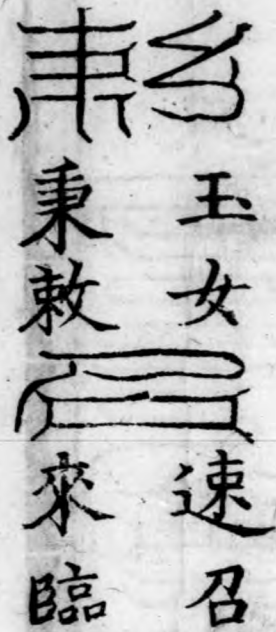 玉女速召
秉敕來臨